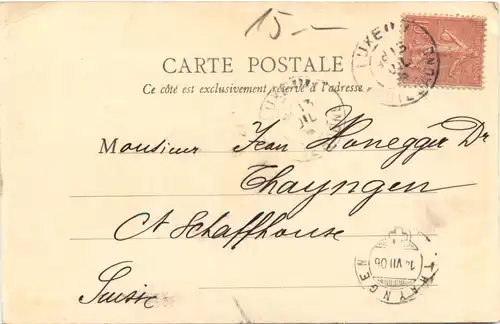 15.–
CARTE POSTALE
Ce côté est exclusivement réservé à l'adresse
LUXE
13
JUIL
Monsieur Jean Honegger Dr
Thayngen
Ct Schaffhouse
Suisse
THAYNGEN
14.VII.06